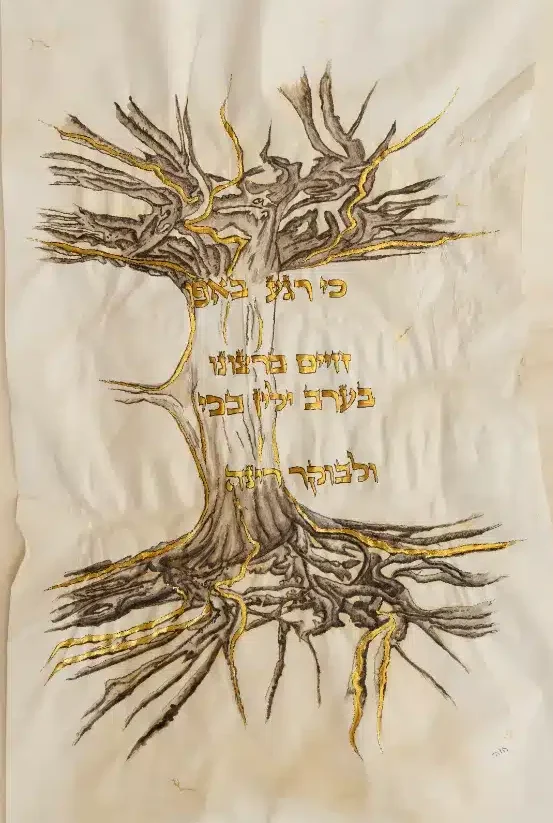 כי רגע באפו
חיים ברצונו
בערב ילין בכי
ולבוקר רינה